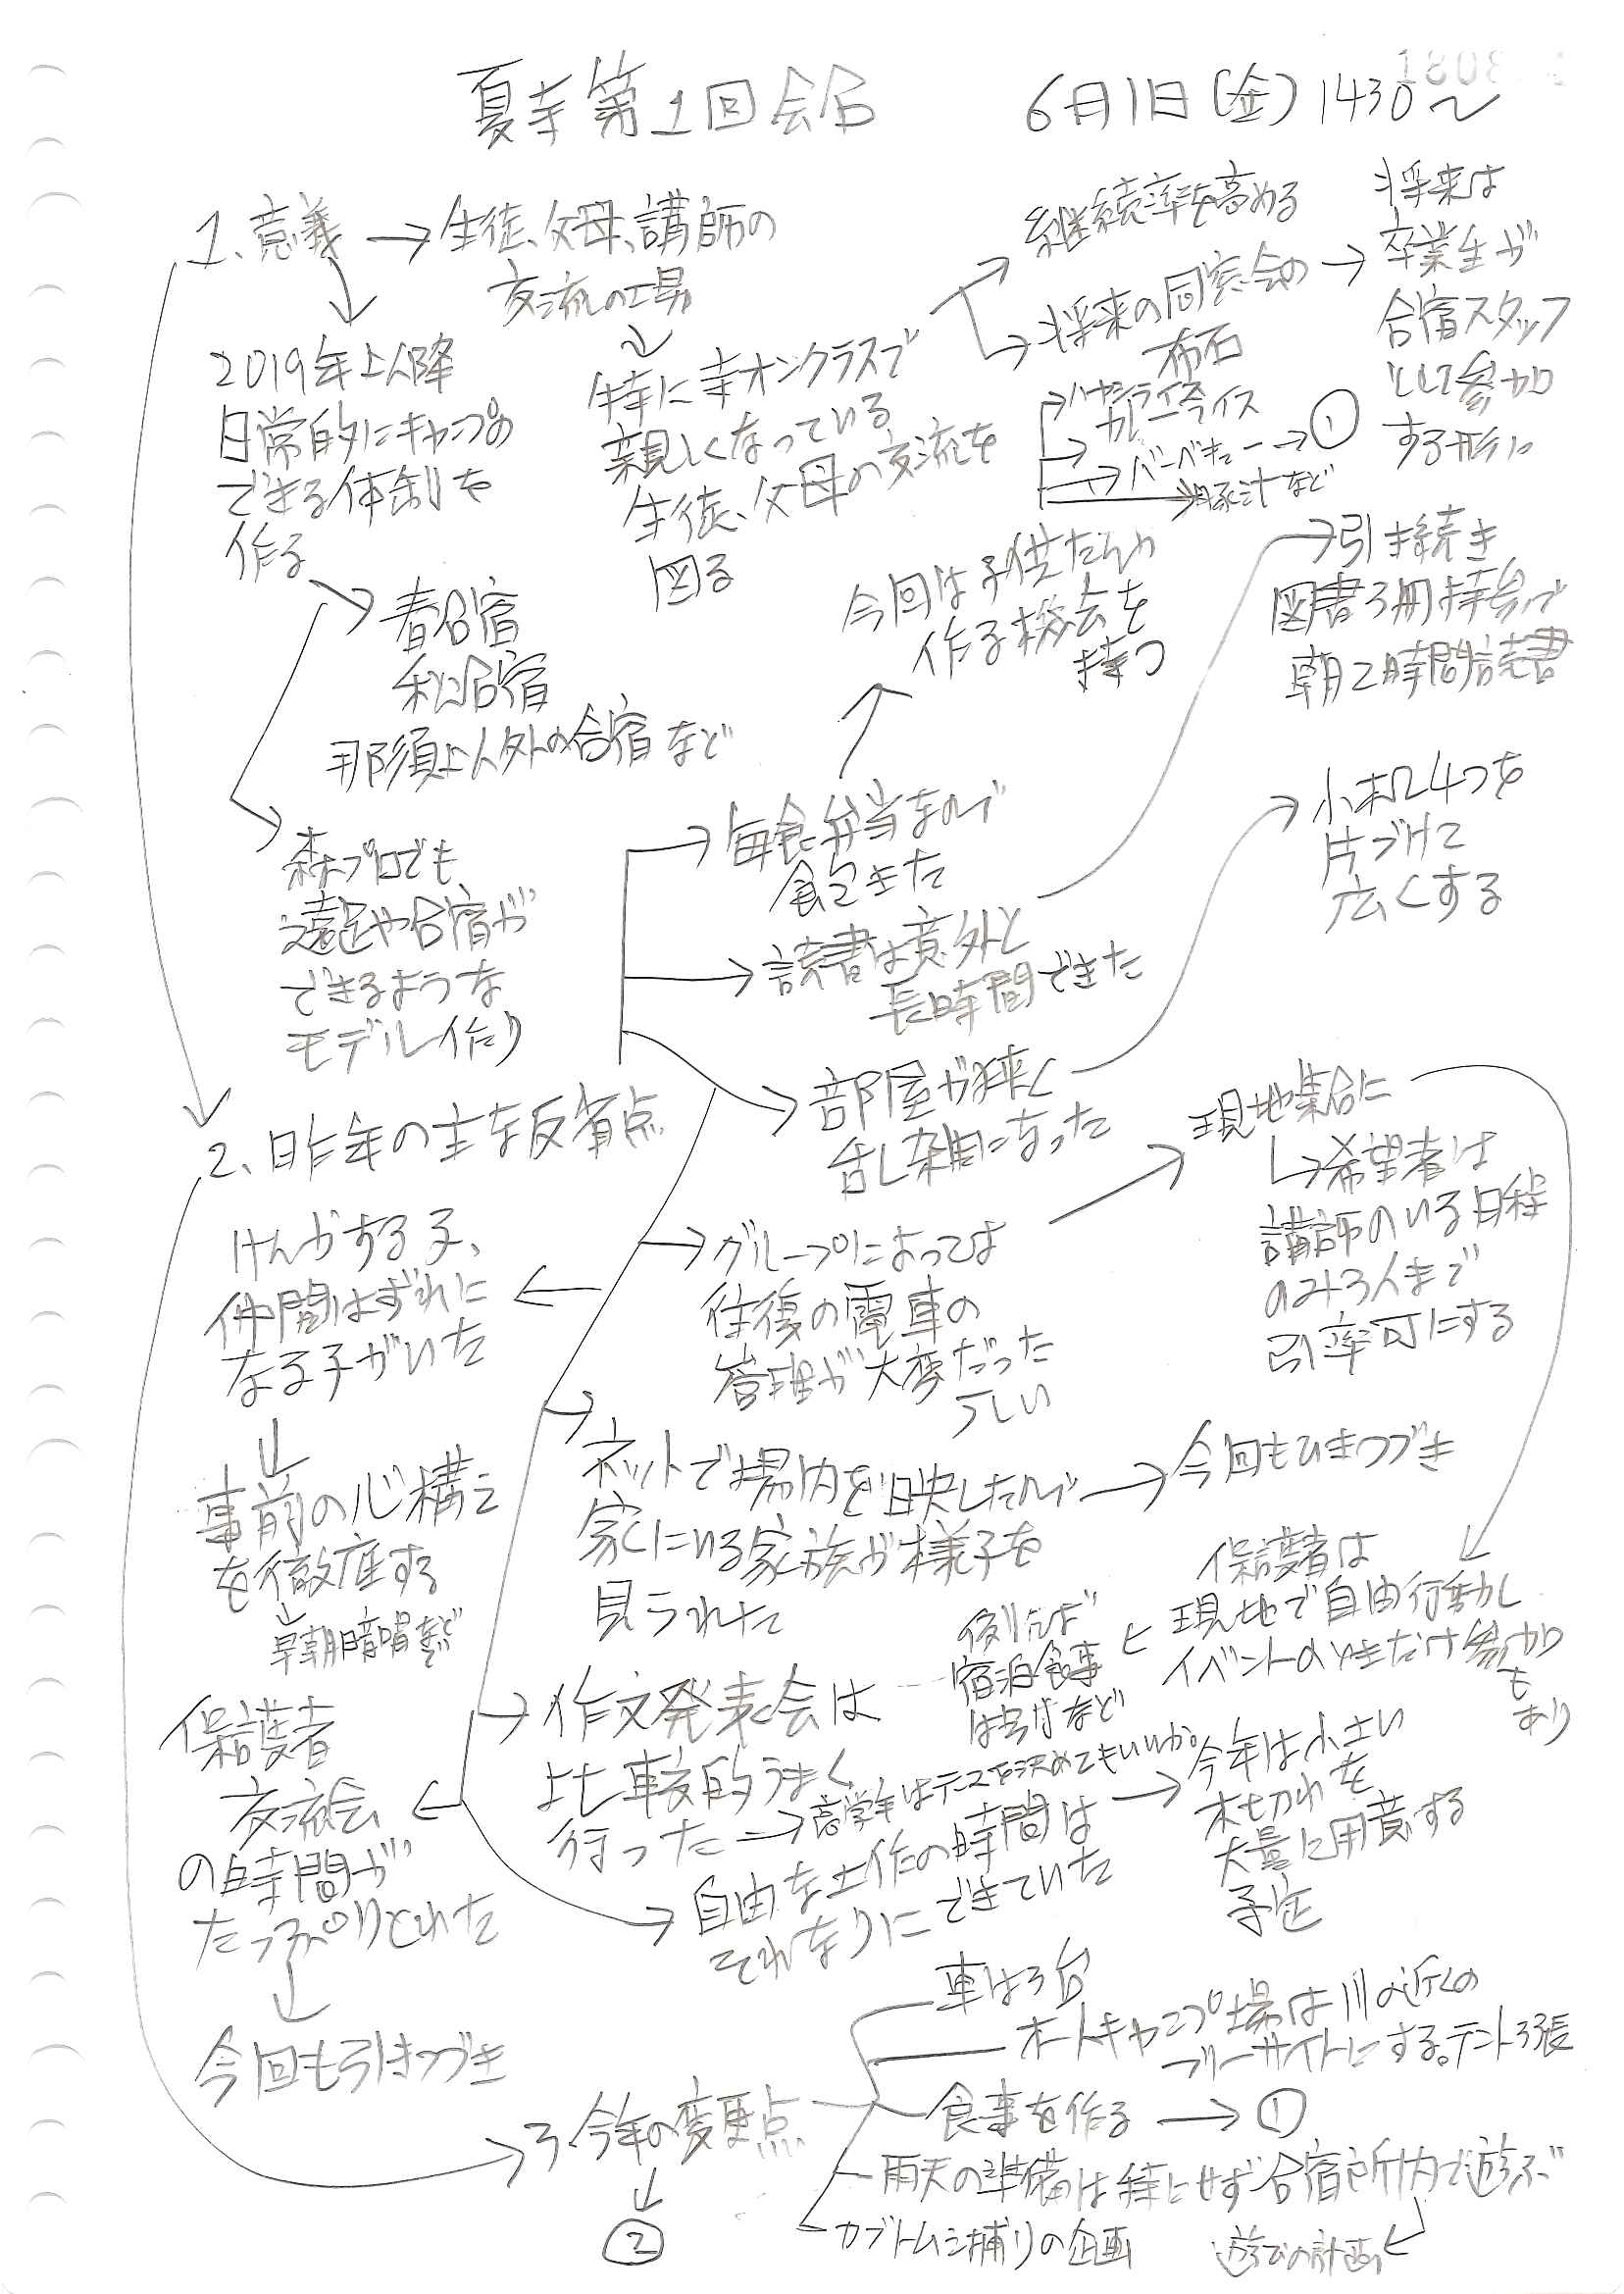 夏寺第1回会合
6月1日(金)1430〜
1、意義
生徒、父母、講師の
交流の工場
2019年以降
日常的にキャンプの
できる体制を
作る
春合宿
秋合宿
那須以外の合宿など
森プロでも
遠足や合宿が
できるような
モデル作り
特に寺オンクラスで
親しくなっている
生徒、父母の交流を
図る
継続率を高める
将来の同窓会の
布石
将来は
卒業生が
合宿スタッフ
として参加
する形に
2、昨年の主な反省点
毎食弁当なので
飽きた
今回は子供たちが
作る機会を
持つ
ハヤシライス
カレーライス
バーベキュー
①
豚汁など
読書は意外と
長時間できた
引き続き
図書3冊持参で
朝2時間読書
部屋が狭く
乱雑になった
小机4つを
片づけて
広くする
グループによっては
往復の電車の
管理が大変だった
らしい
現地集合に
希望者は
講師のいる日程
のみ3人まで
引率可にする
保護者は
現地で自由行動し
イベントのときだけ参加
も
あり
例えば
宿泊食事
は各自など
けんかする子、
仲間はずれに
なる子がいた
事前の心構え
を徹底する
早朝暗唱など
ネットで場内を映したので
家にいる家族が様子を
見られた
今回もひきつづき
作文発表会は
比較的うまく
行った
高学年はテーマを決めてもいいか。
自由な工作の時間は
それなりにできていた
今年は小さい
木切れを
大量に用意する
予定
保護者
交流会
の時間が
たっぷりとれた
今回も引きつづき
3、今年の変更点
②
車は3台
オートキャンプ場は川の近くの
フリーサイトにする。テント3張
食事を作る
①
雨天の準備は特にせず合宿所内で遊ぶ
遊びの計画
カブトムシ捕りの企画